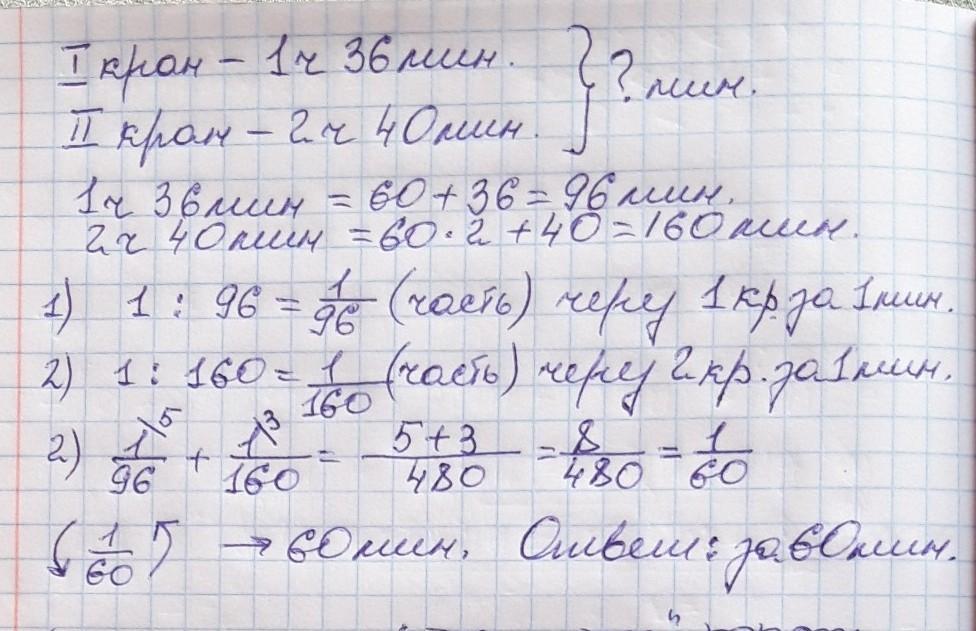 I кран – 1ч 36мин.
} ? мин.
II кран – 2ч 40мин.
1ч 36мин = 60+36=96мин.
2ч 40мин =60·2+40=160мин.
1) 1 : 96 = 1/96 (часть) через 1кр.за 1мин.
2) 1 : 160 = 1/160 (часть) через 2кр.за 1мин.
2) 1\5/96 + 1\3/160 = 5+3/480 = 8/480 = 1/60
(1/60) → 60мин. Ответ: за 60мин.